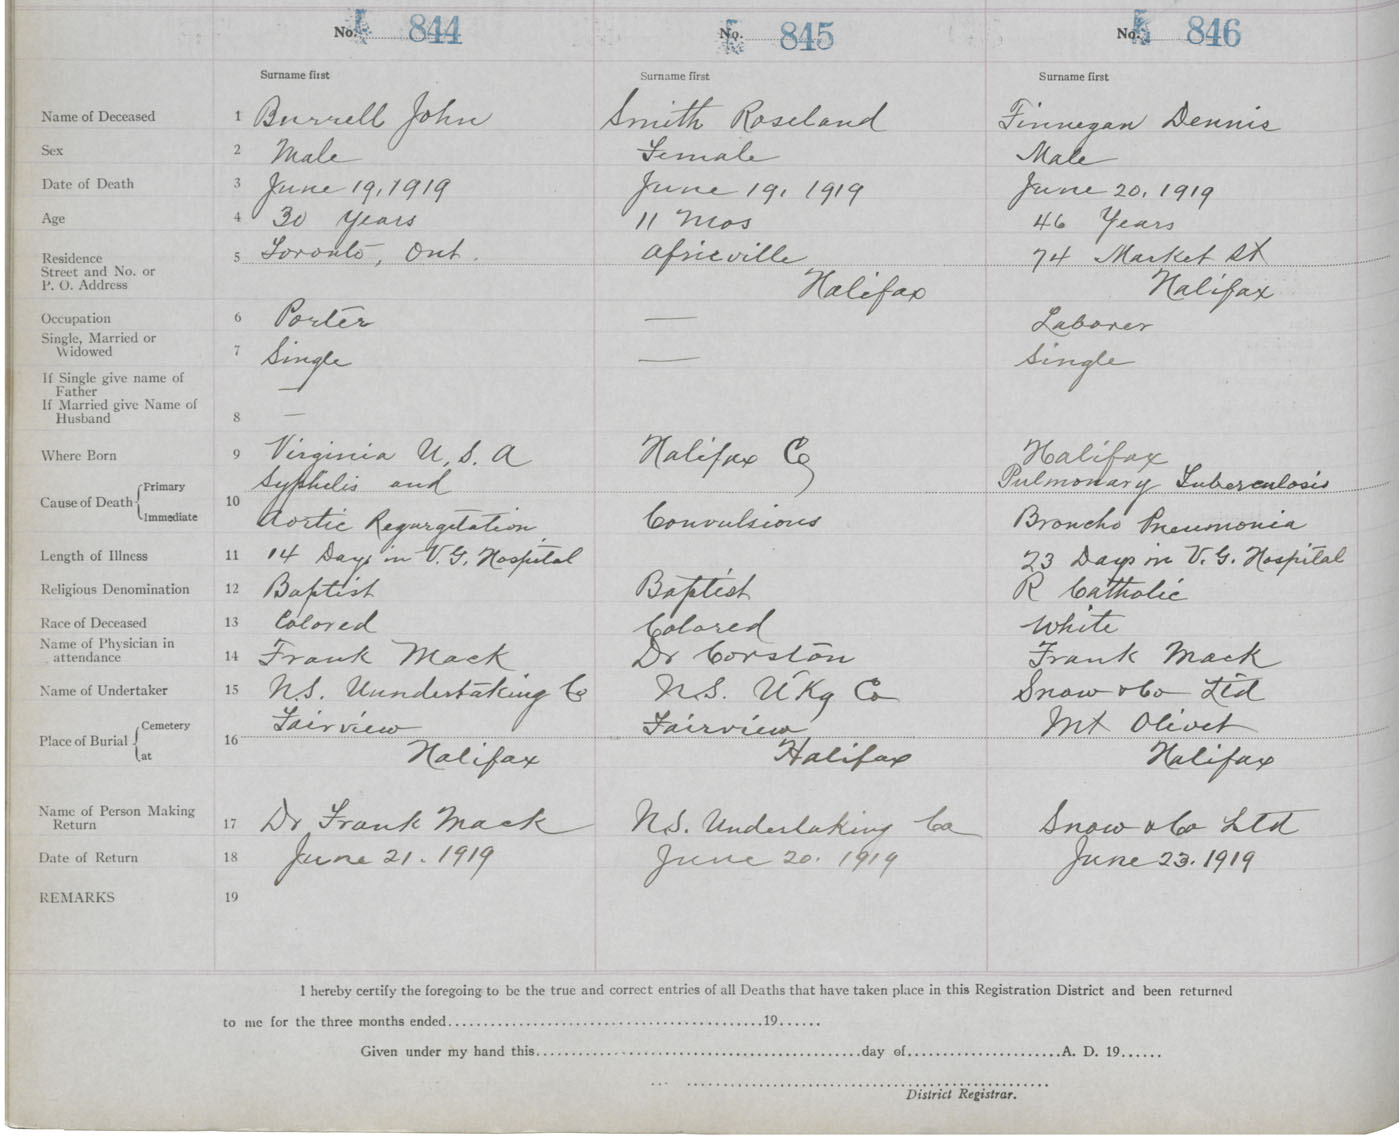 No. 844 No. 845 No. 846
Surname first Surname first Surname first
Name of Deceased 1 Burrell John Smith Roseland Finnegan Dennis
Sex 2 Male Female Male
Date of Death 3 June 19, 1919 June 19, 1919 June 20, 1919
Age 4 30 Years 11 Mos 46 Years
Residence 5 Toronto, Ont. Africville 74 Market St
Street and No. or
P. O. Address Halifax Halifax
Occupation 6 Porter — Laborer
Single, Married or
Widowed 7 Single — Single
If Single give name of
Father —
If Married give Name of
Husband 8 —
Where Born 9 Virginia U.S.A Halifax Co Halifax
Primary Syphilis and Pulmonary Tuberculosis
Cause of Death 10
Immediate Aortic Regurgitation Convulsions Broncho Pneumonia
Length of Illness 11 14 Days in V.G. Hospital 23 Days in V.G. Hospital
Religious Denomination 12 Baptist Baptist R Catholic
Race of Deceased 13 Colored Colored White
Name of Physician in
attendance 14 Frank Mack Dr Corston Frank Mack
Name of Undertaker 15 N.S. Uundertaking Co N.S. U'Kg Co Snow & Co Ltd
Cemetery Fairview Fairview Mt Olivet
Place of Burial 16
at Halifax Halifax Halifax
Name of Person Making
Return 17 Dr Frank Mack N.S. Undertaking Co Snow & Co Ltd
Date of Return 18 June 21. 1919 June 20. 1919 June 23. 1919
REMARKS 19
I hereby certify the foregoing to be the true and correct entries of all Deaths that have taken place in this Registration District and been returned
to me for the three months ended............................................19......
Given under my hand this.............................................day of......................A. D. 19......
District Registrar.